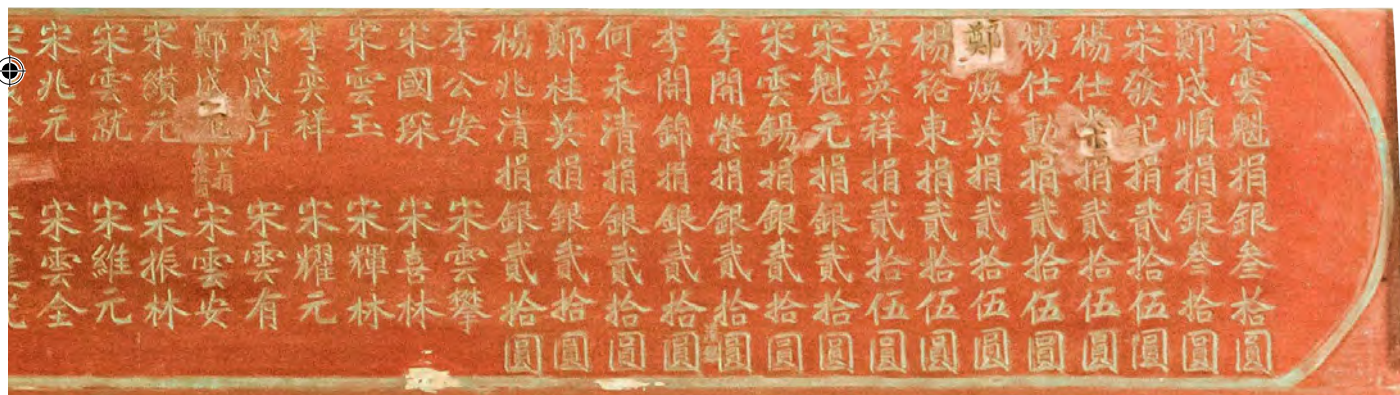 宋雲魁捐銀叁拾圓
鄭成順捐銀叁拾圓
宋發記捐貳拾伍圓
楊仕捐貳拾伍圓
楊仕勳捐貳拾伍圓
鄭煥英捐貳拾伍圓
楊裕東捐貳拾伍圓
吳英祥捐貳拾伍圓
宋魁元捐銀貳拾圓
宋雲錫捐銀貳拾圓
李開榮捐銀貳拾圓
李開錦捐銀貳拾圓
何永清捐銀貳拾圓
鄭桂英捐銀貳拾圓
楊兆清捐銀貳拾圓
李公安 宋雲攀
宋國琛 宋喜林
宋雲玉 宋輝林
李奕祥 宋耀元
鄭成片 宋雲有
鄭成 以上捐 宋雲安
宋纘元 宋振林
宋雲就 宋維元
宋兆元 宋雲全